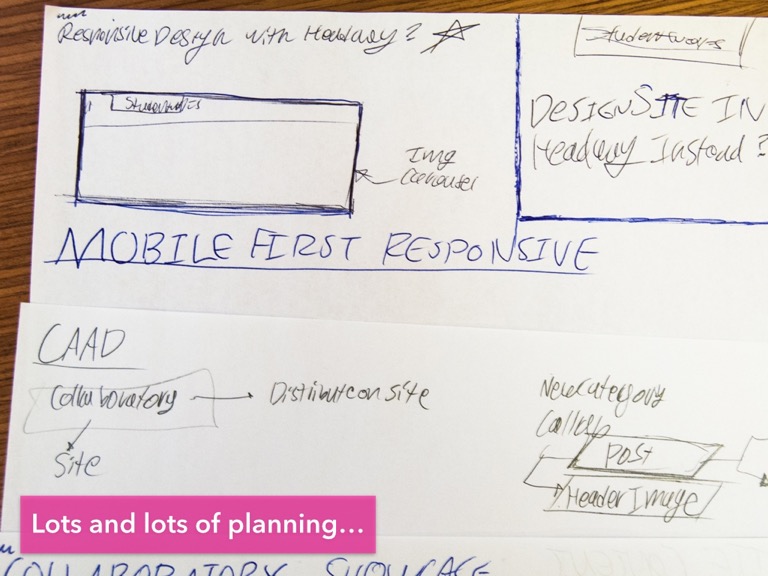 Responsive Design with Headway?
Studentwores
DESIGN SITE IN
Headway Instead?
Img
Carousel
MOBILE FIRST RESPONSIVE
CAAD
Collaboratory
Distribution Site
Site
New Category
Post
Header Image
Lots and lots of planning…
COLLABORATORY SHOWCASE